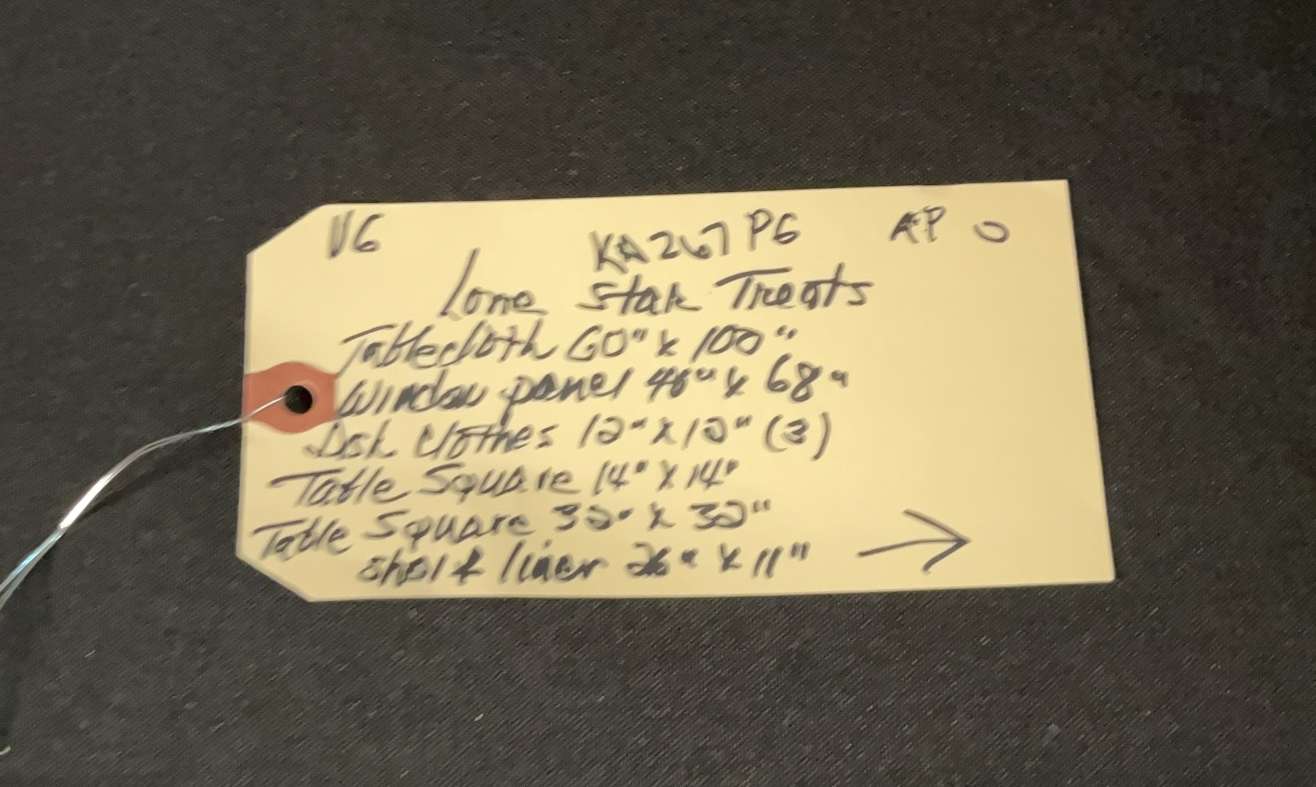 VG KA267 PG AP O
Lone Star Treats
Tablecloth 60" x 100"
Window panel 40" x 68"
Dsh Clothes 12" x 12" (3)
Table Square 14" x 14"
Table Square 32" x 32"
shelf liner 26" x 11" →